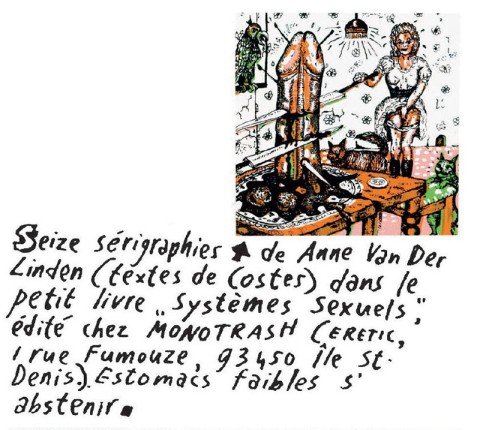 Seize sérigraphies ↑ de Anne Van Der
Linden (textes de Costes) dans le
petit livre „Systèmes Sexuels",
édité chez MONOTRASH (ERETIC,
1 rue Fumouze, 93450 Île St.
Denis). Estomacs faibles s'
abstenir.